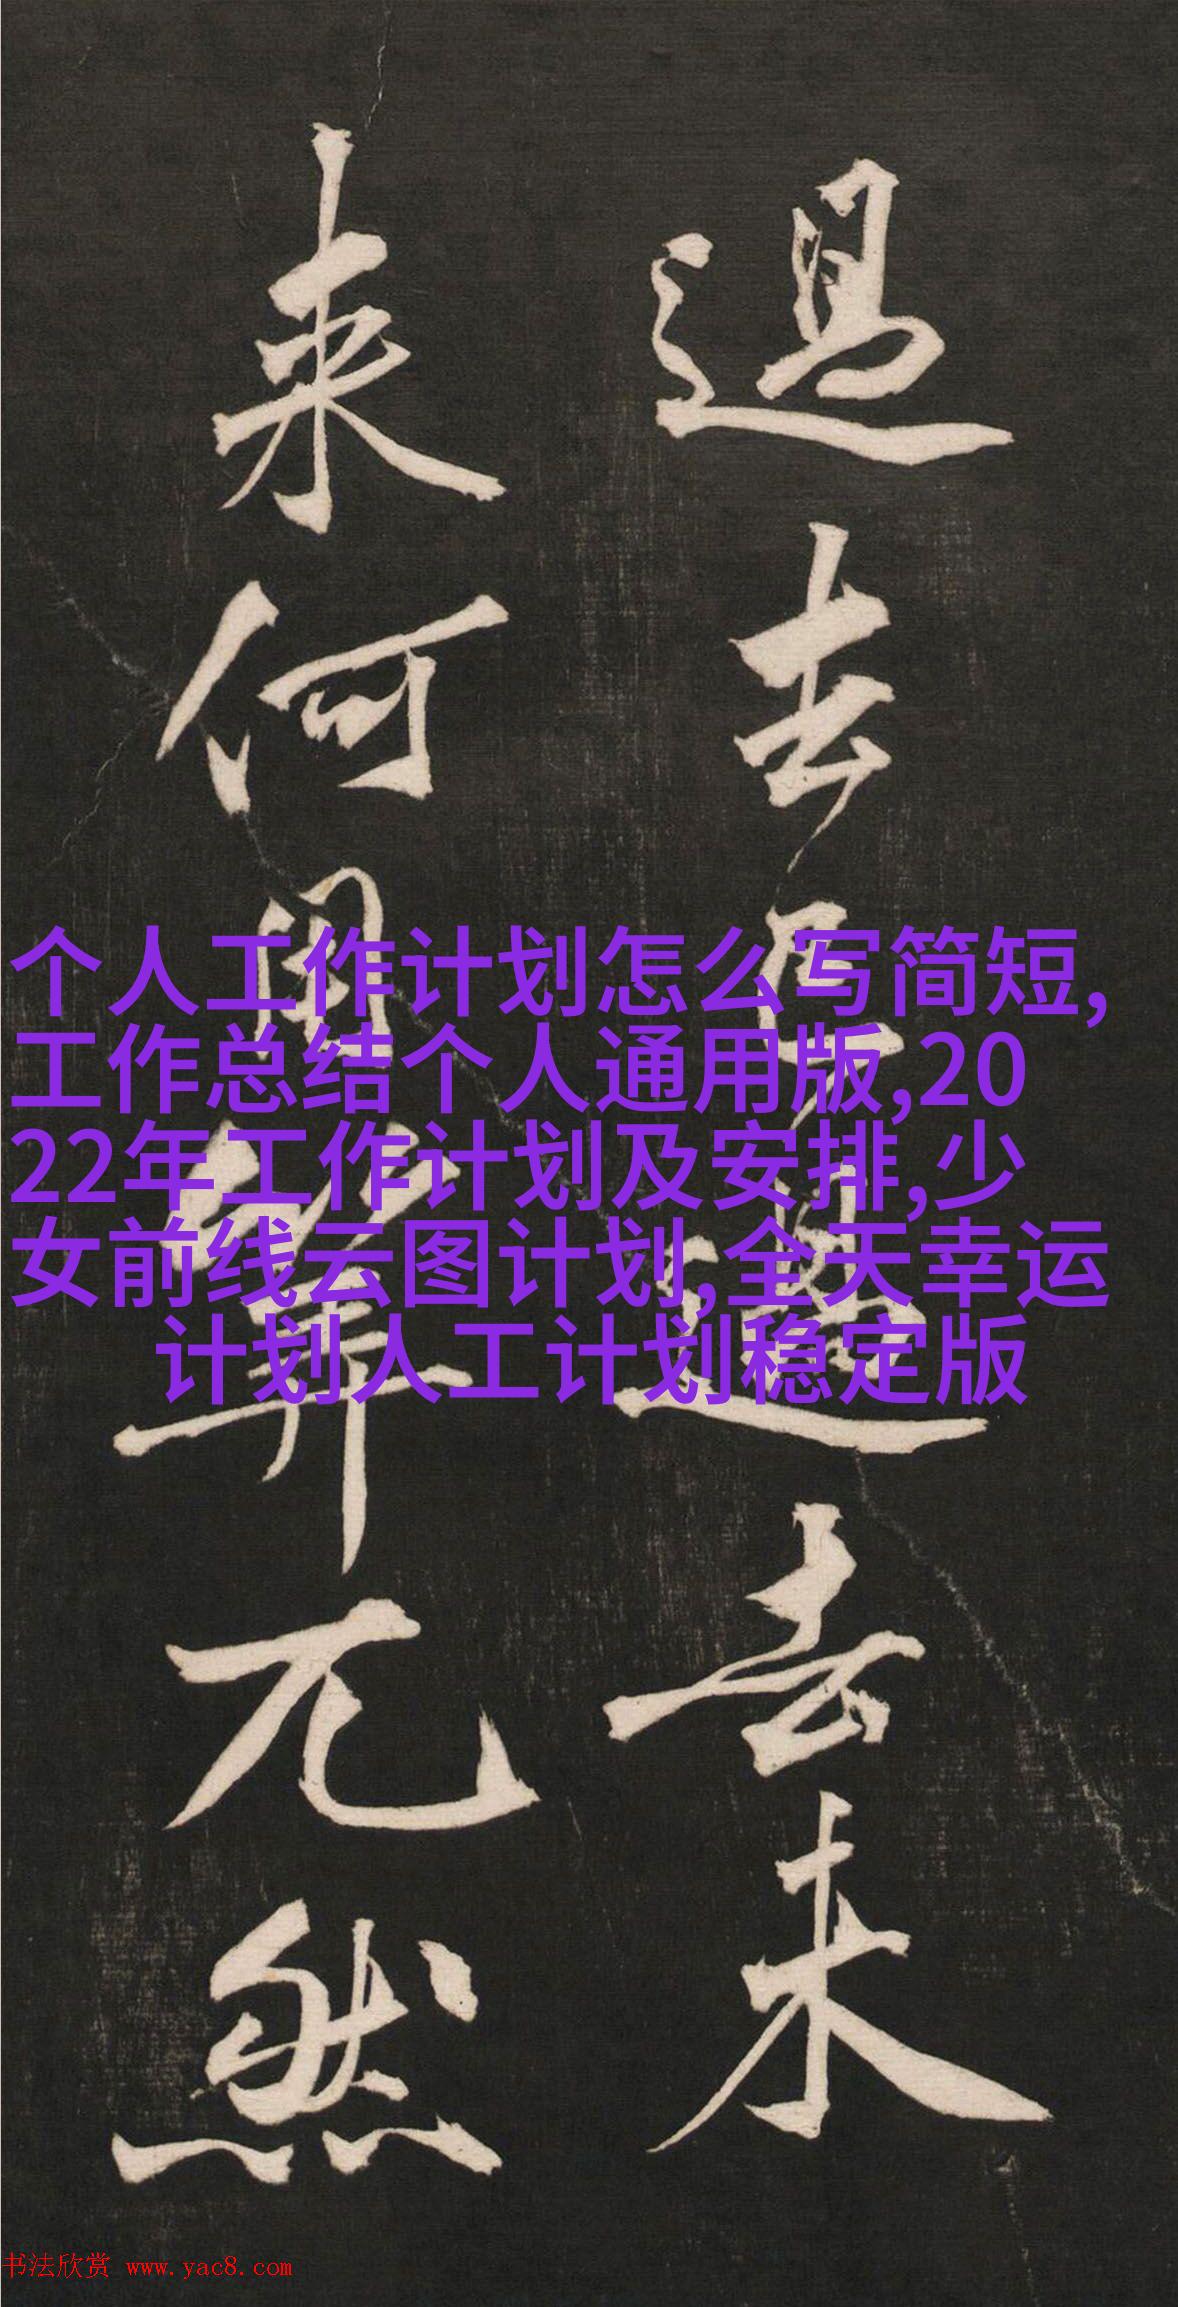 過去過去未
来何用筭兀然
个人工作计划怎么写简短,
工作总结个人通用版,20
22年工作计划及安排,少
女前线云图计划,全天幸运
计划人工计划稳定版
书法欣赏 www.yac8.com